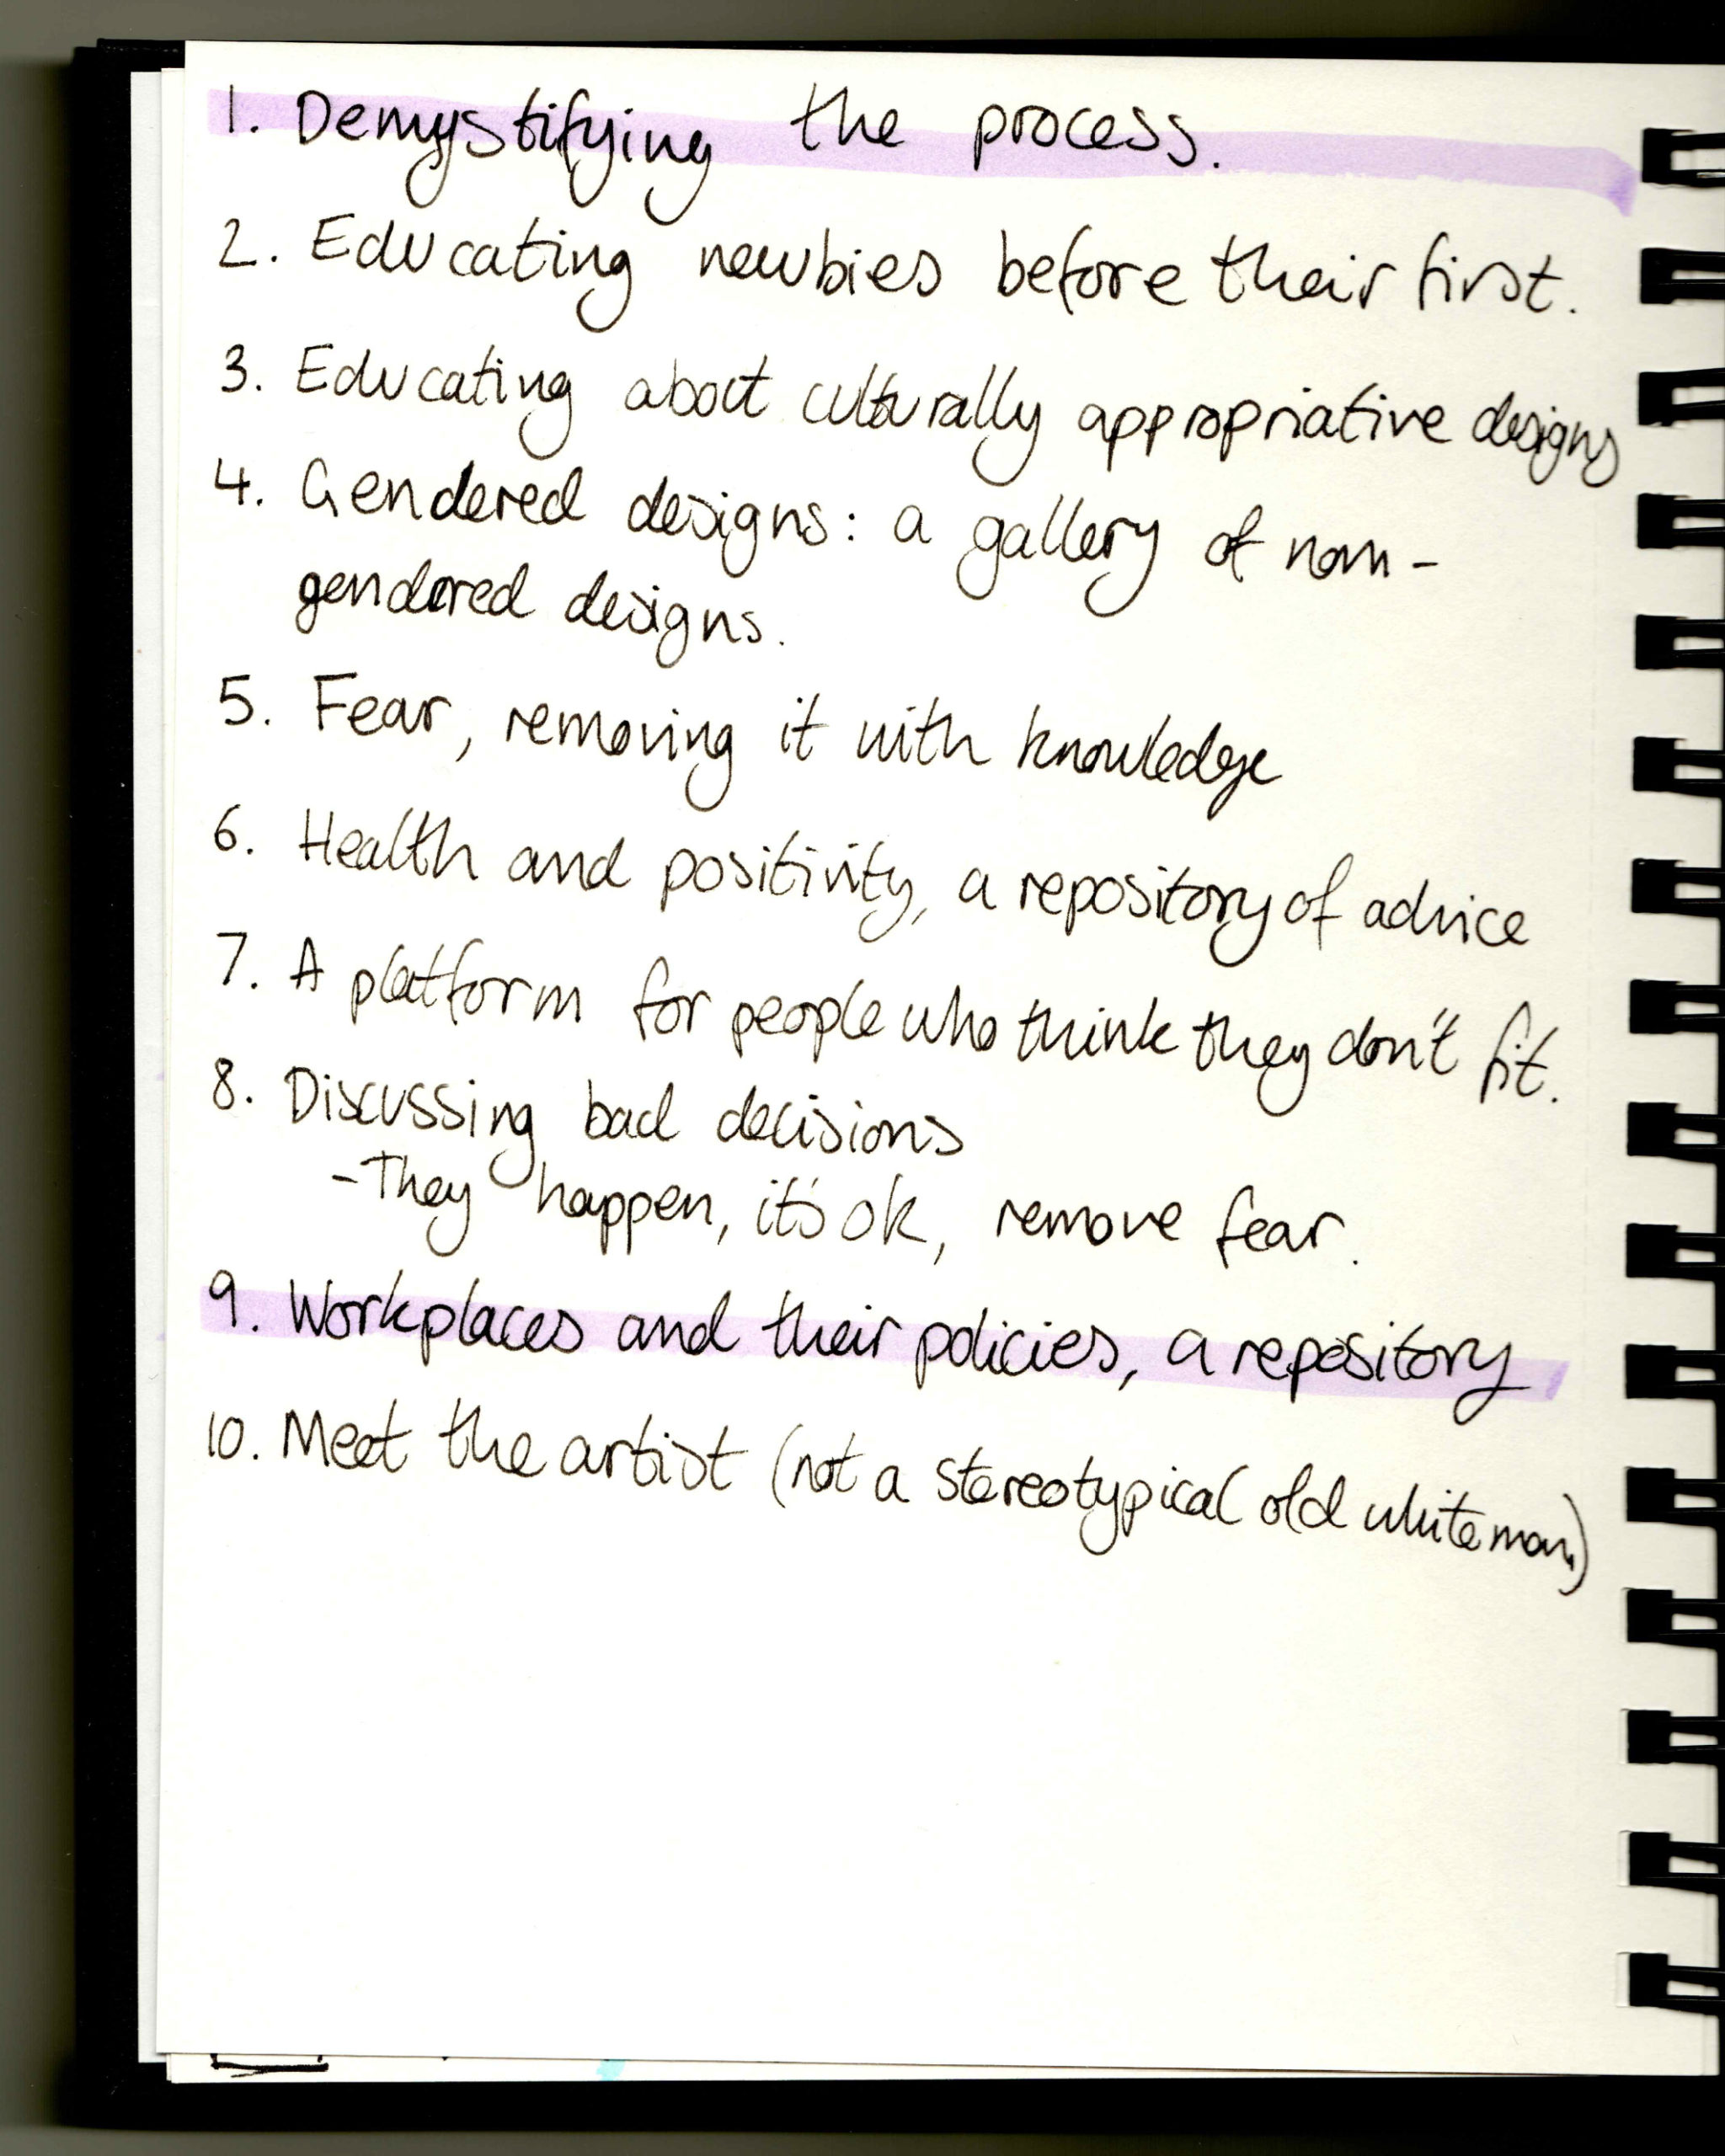 1. Demystifying the process.
2. Educating newbies before their first.
3. Educating about culturally appropriative designs
4. Gendered designs: a gallery of non-
gendered designs.
5. Fear, removing it with knowledge
6. Health and positivity, a repository of advice
7. A platform for people who think they don't fit.
8. Discussing bad decisions
- They happen, it's ok, remove fear.
9. Workplaces and their policies, a repository
10. Meet the artist (not a stereotypical old white man)